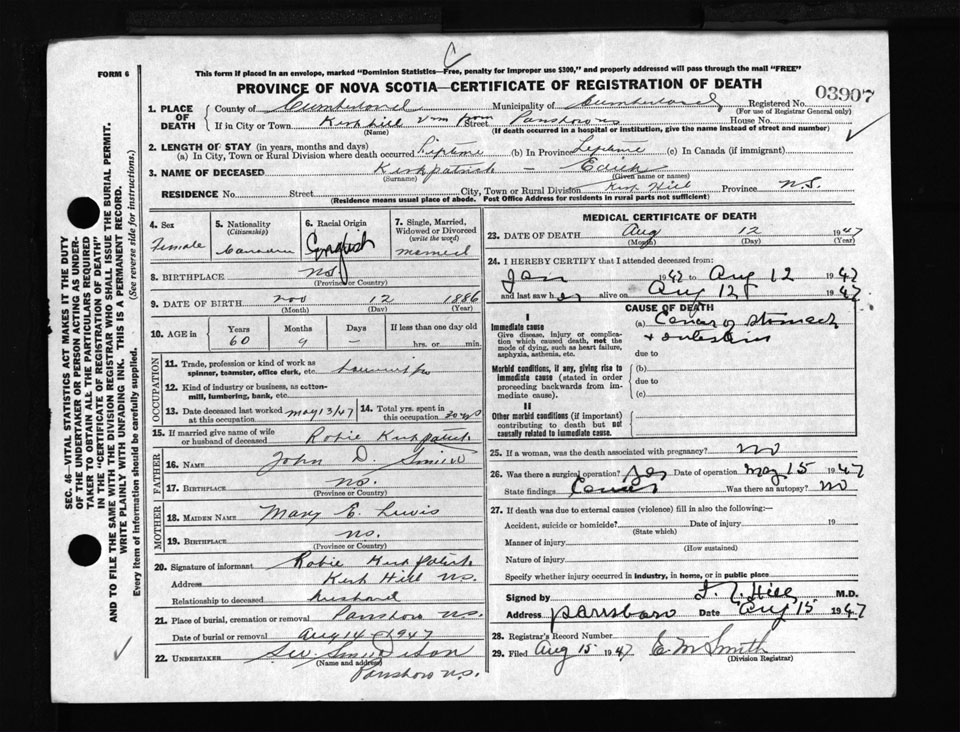 C
FORM 6
This form if placed in an envelope, marked "Dominion Statistics—Free, penalty for improper use $300," and properly addressed will pass through the mail "FREE"
PROVINCE OF NOVA SCOTIA—CERTIFICATE OF REGISTRATION OF DEATH
03907
1. PLACE OF DEATH
County of Cumberland Municipality of Cumberland Registered No.
(For use of Registrar General only)
If in City or Town Kirk Hill from Street Parrsboro NS House No.
(Name) (If death occurred in a hospital or institution, give the name instead of street and number)
2. LENGTH OF STAY (in years, months and days)
(a) In City, Town or Rural Division where death occurred Lifetime (b) In Province Lifetime (c) In Canada (if immigrant)
3. NAME OF DECEASED Kirkpatrick — Edith
(Surname) (Given name or names)
RESIDENCE No. Street City, Town or Rural Division Kirk Hill Province N.S.
(Residence means usual place of abode. Post Office Address for residents in rural parts not sufficient)
4. Sex
Female
5. Nationality
(Citizenship)
Canadian
6. Racial Origin
English
7. Single, Married, Widowed or Divorced
(write the word)
married
8. BIRTHPLACE NS.
(Province or Country)
9. DATE OF BIRTH Nov 12 1886
(Month) (Day) (Year)
10. AGE in Years Months Days If less than one day old
60 9 — hrs. or min.
OCCUPATION
11. Trade, profession or kind of work as spinner, teamster, office clerk, etc.
12. Kind of industry or business, as cotton-mill, lumbering, bank, etc.
13. Date deceased last worked at this occupation May 13/47 14. Total yrs. spent in this occupation 30 yrs
15. If married give name of wife or husband of deceased Robie Kirkpatrick
FATHER
16. NAME John D. Smith
17. BIRTHPLACE NS.
(Province or Country)
MOTHER
18. MAIDEN NAME Mary E. Lewis
19. BIRTHPLACE NS.
(Province or Country)
20. Signature of informant Robie Kirkpatrick
Address Kirk Hill NS.
Relationship to deceased husband
21. Place of burial, cremation or removal Parrsboro NS.
Date of burial or removal Aug 14 1947
22. UNDERTAKER Smith & Son
(Name and address)
Parrsboro N.S.
MEDICAL CERTIFICATE OF DEATH
23. DATE OF DEATH Aug 12 1947
(Month) (Day) (Year)
24. I HEREBY CERTIFY that I attended deceased from:
Jan 1947 to Aug 12 1947
and last saw her alive on Aug 12 1947
CAUSE OF DEATH
I
Immediate cause
Give disease, injury or complication which caused death, not the mode of dying, such as heart failure, asphyxia, asthenia, etc.
(a) Cancer of Stomach
& Intestines
due to
Morbid conditions, if any, giving rise to immediate cause (stated in order proceeding backwards from immediate cause).
(b)
due to
(c)
II
Other morbid conditions (if important) contributing to death but not causally related to immediate cause.
25. If a woman, was the death associated with pregnancy? No
26. Was there a surgical operation? Yes Date of operation May 15 1947
State findings Cancer Was there an autopsy? No
27. If death was due to external causes (violence) fill in also the following:—
Accident, suicide or homicide? Date of injury 19
(State which)
Manner of injury
(How sustained)
Nature of injury
Specify whether injury occurred in industry, in home, or in public place
Signed by Hill M.D.
Address Parrsboro Date Aug 15 1947
28. Registrar's Record Number
29. Filed Aug 15 1947 E. M Smith
(Division Registrar)
SEC. 46—VITAL STATISTICS ACT MAKES IT THE DUTY
OF THE UNDERTAKER OR PERSON ACTING AS UNDERTAKER TO OBTAIN ALL THE PARTICULARS REQUIRED
IN THE "CERTIFICATE OF REGISTRATION OF DEATH"
AND TO FILE THE SAME WITH THE DIVISION REGISTRAR WHO SHALL ISSUE THE BURIAL PERMIT.
WRITE PLAINLY WITH UNFADING INK. THIS IS A PERMANENT RECORD.
Every item of information should be carefully supplied. (See reverse side for instructions.)